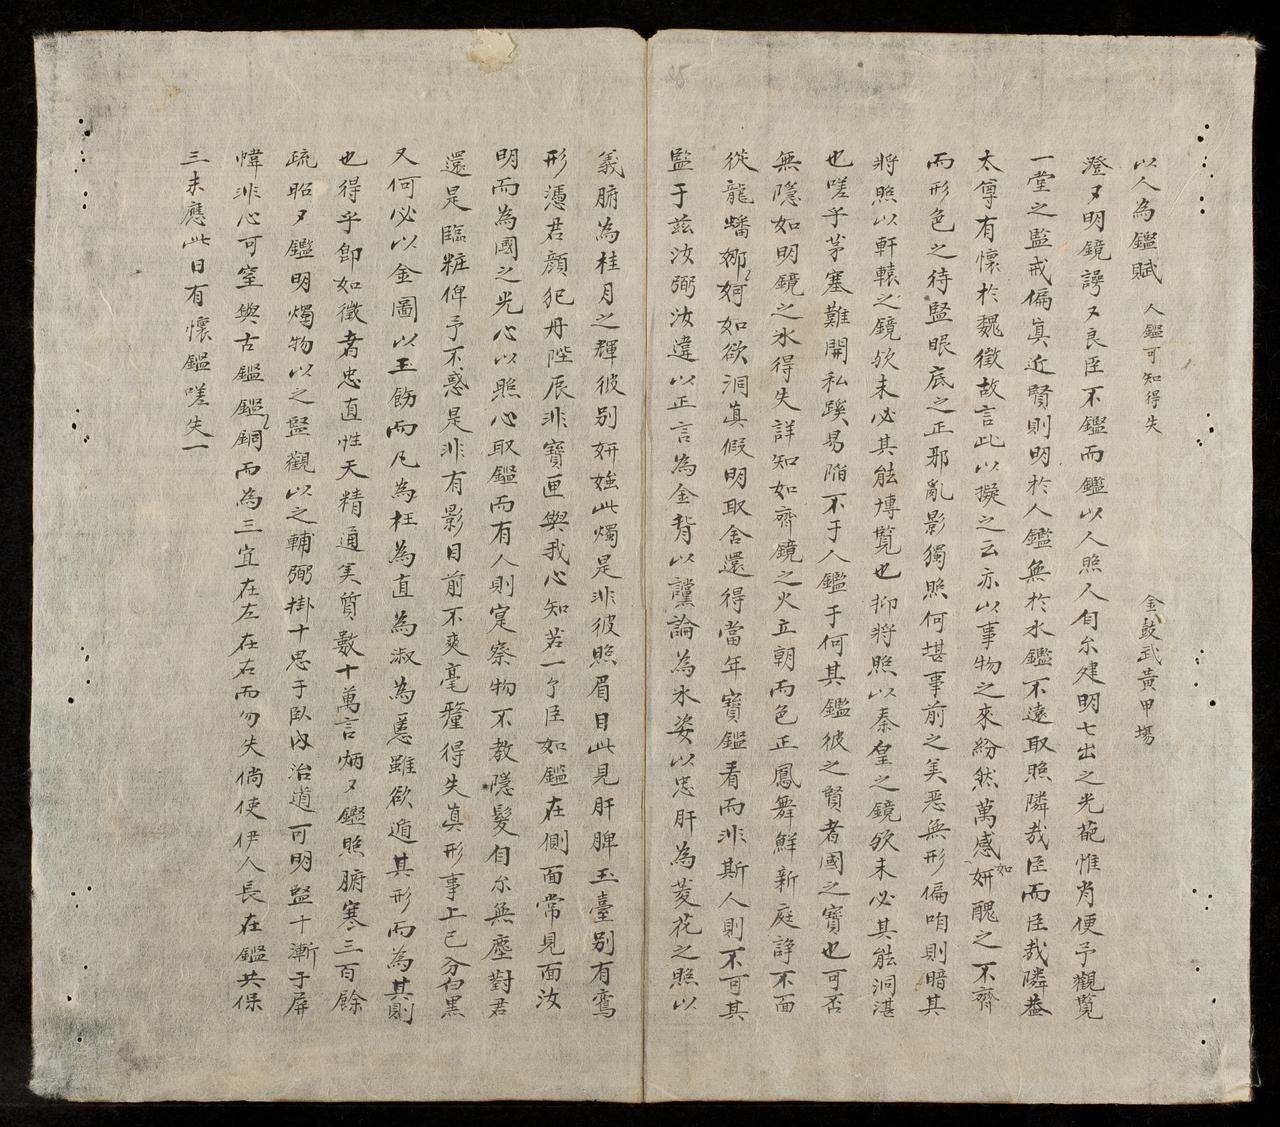 以人為鑑賦 人鑑可知得失 金鼓武黃甲場
澄又明鏡謗又良臣不鑑而鑑以人照人自尔建明七出之光葩惟肖便予觀覧
一堂之監戒偏真近賢則明於人鑑無於水鑑不遠取照隣哉臣而臣哉隣蓋
太傅有懷於魏徵故言此以擬之云亦以事物之來紛然萬感如妍醜之不齊
而形色之待監眼底之正邪亂影獨照何堪事前之美悪無形偏咱則暗其
將照以軒轅之鏡欤未必其能博覧也抑將照以秦皇之鏡欤未必其能洞湛
也嗟乎茅塞難開私蹊易陷不于人鑑于何其鑑彼之賢者國之寶也可否
無隱如明鏡之氷得失詳知如齊鏡之火立朝而色正鳳舞鮮新庭諍不面
從龍蟠婀娜如欲洞真假明取舍還得當年寶鑑看而非斯人則不可其
監于兹汝弼汝違以正言為金背以讜論為氷姿以忠肝為菱花之照以
義腑為桂月之輝彼別妍媸此燭是非彼照眉目此見肝脾玉臺別有鸞
形憑君顔犯丹陛辰非寶匣與我心知若一个臣如鑑在側面常見面汝
明而為國之光心以照心取鑑而有人則寔察物不教隱髮自尔無塵對君
還是臨粧俾予不惑是非有影目前不爽毫釐得失真形事上已分白黒
又何必以金圖以玉飭而凡為枉為直為淑為慝雖欲遁其形而為其則
也得乎卽如徵者忠直性天精通美質數十萬言炳又鑑照腑寒三百餘
疏昭又鑑明燭物以之監觀以之輔弼掛十思于臥内治道可明監十漸于屏
幃非心可窒與古鑑鑑銅而為三宜在左在右而勿失倘使伊人長在鑑共保
三未應此日有懷鑑嗟失一